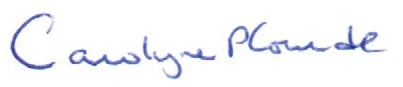 Carolyne Plourde